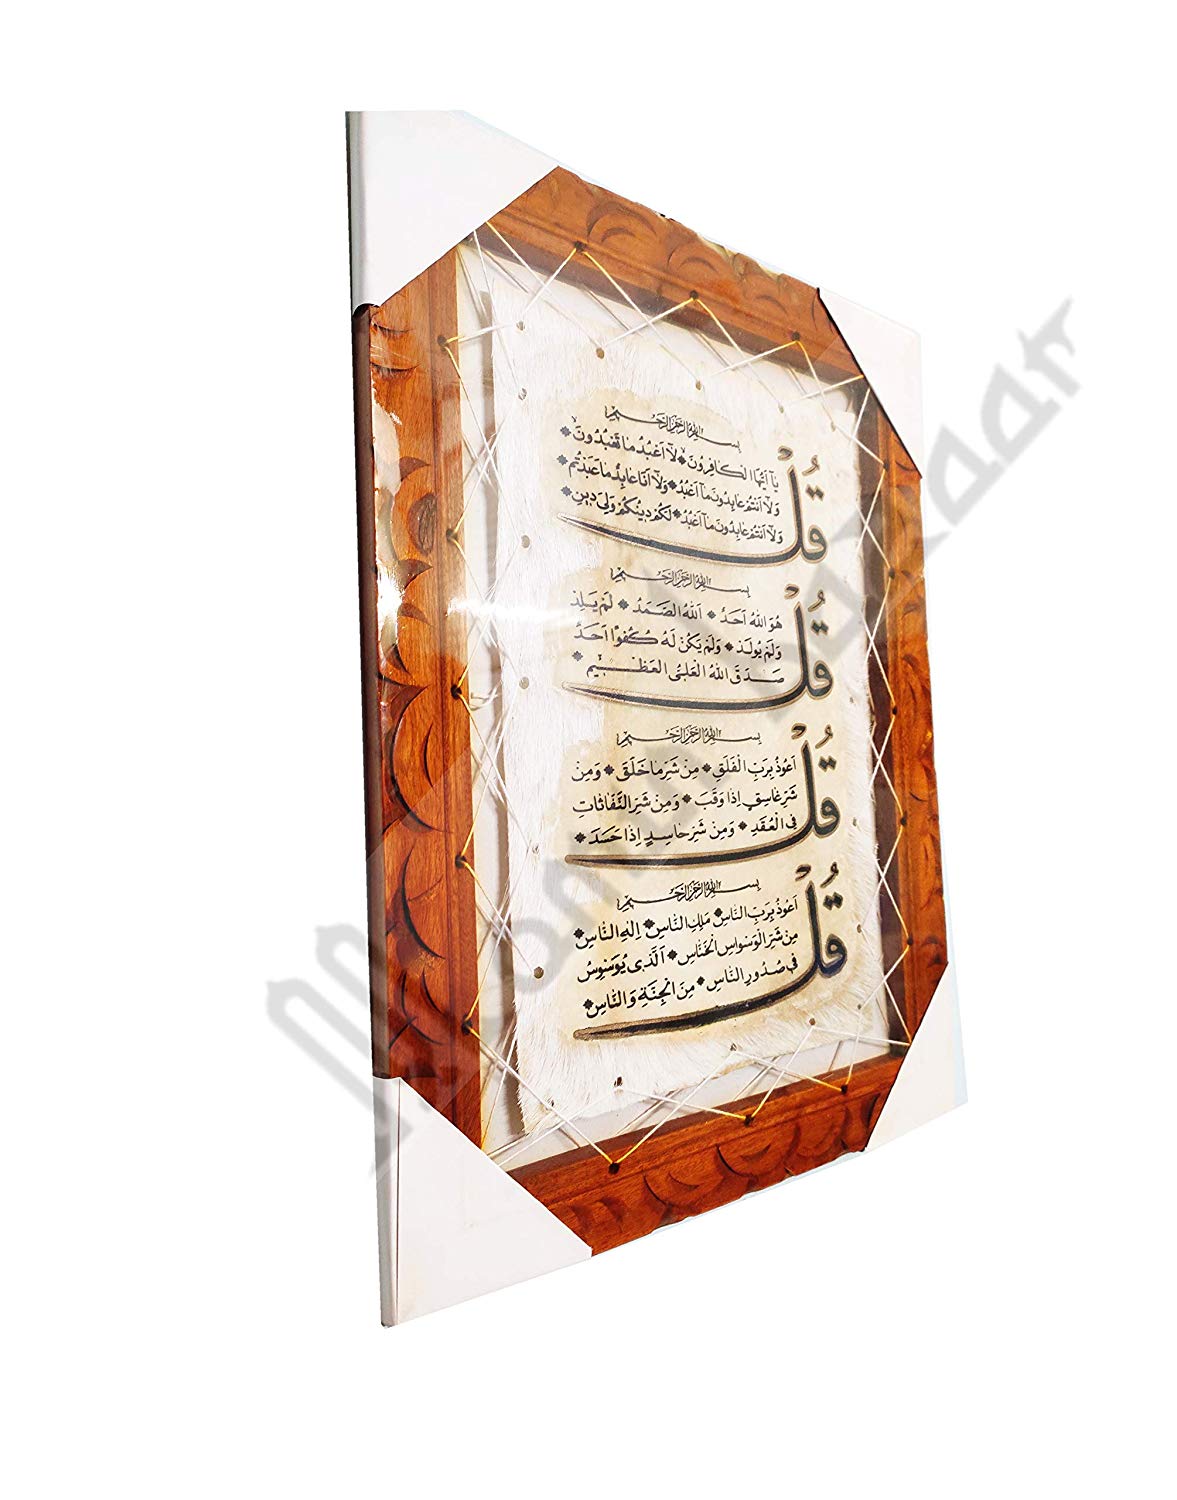 بِسْمِ اللهِ الرَّحْمٰنِ الرَّحِيْمِ
قُلْ
يَآ اَيُّهَا الْكَافِرُونَ * لَآ اَعْبُدُ مَا تَعْبُدُونَ *
وَلَآ اَنْتُمْ عَابِدُونَ مَآ اَعْبُدُ * وَلَآ اَنَا عَابِدٌ مَا عَبَدْتُمْ *
وَلَآ اَنْتُمْ عَابِدُونَ مَآ اَعْبُدُ * لَكُمْ دِينُكُمْ وَلِيَ دِينِ *
بِسْمِ اللهِ الرَّحْمٰنِ الرَّحِيْمِ
قُلْ
هُوَ اللهُ اَحَدٌ * اَللهُ الصَّمَدُ * لَمْ يَلِدْ
وَلَمْ يُولَدْ * وَلَمْ يَكُنْ لَهُ كُفُوًا اَحَدٌ *
صَدَقَ اللهُ الْعَلِىُّ الْعَظِيْمِ *
بِسْمِ اللهِ الرَّحْمٰنِ الرَّحِيْمِ
قُلْ
اَعُوذُ بِرَبِّ الْفَلَقِ * مِنْ شَرِّ مَا خَلَقَ * وَمِنْ
شَرِّ غَاسِقٍ اِذَا وَقَبَ * وَمِنْ شَرِّ النَّفَّاثَاتِ
فِى الْعُقَدِ * وَمِنْ شَرِّ حَاسِدٍ اِذَا حَسَدَ *
بِسْمِ اللهِ الرَّحْمٰنِ الرَّحِيْمِ
قُلْ
اَعُوذُ بِرَبِّ النَّاسِ * مَلِكِ النَّاسِ * اِلٰهِ النَّاسِ *
مِنْ شَرِّ الْوَسْوَاسِ الْخَنَّاسِ * اَلَّذِى يُوَسْوِسُ
فِى صُدُورِ النَّاسِ * مِنَ الْجِنَّةِ وَالنَّاسِ *